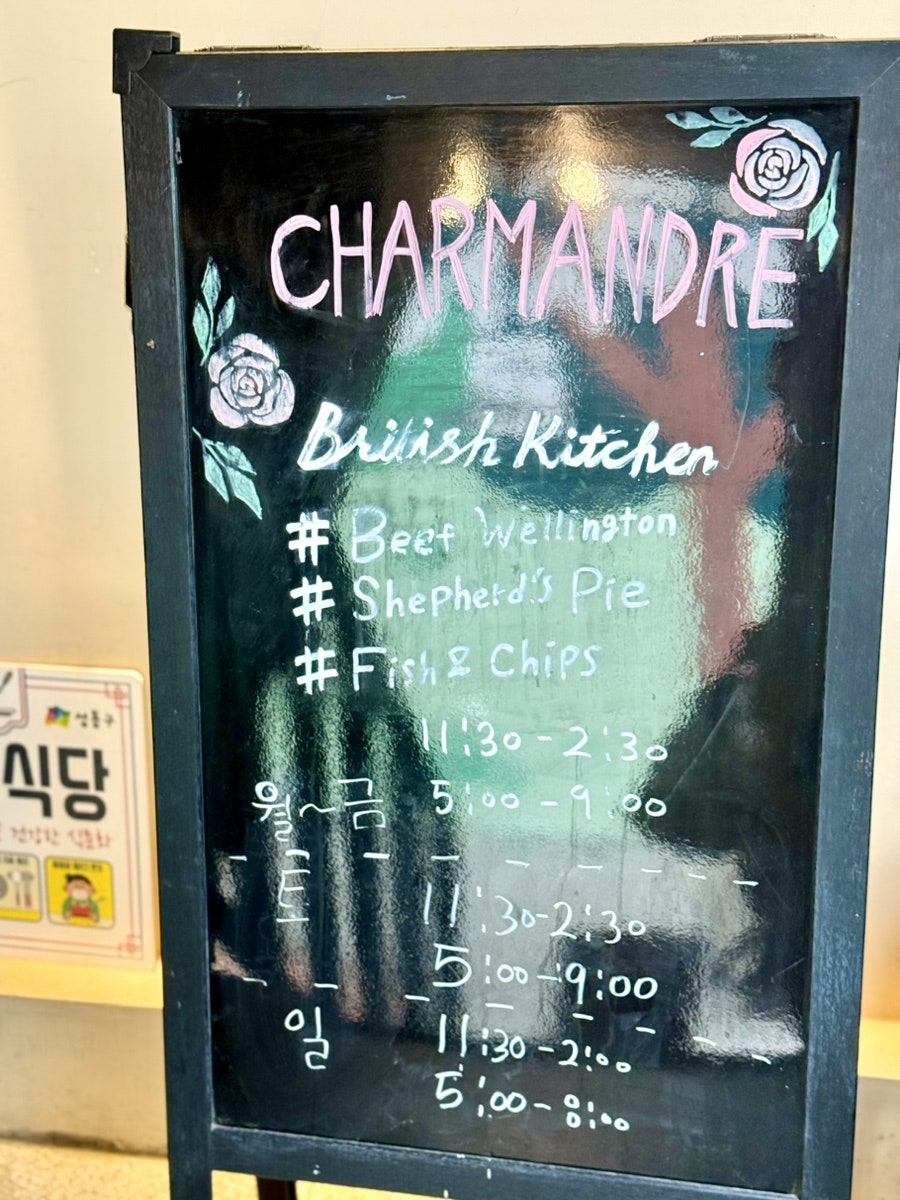 CHARMANDRE
British Kitchen
# Beef Wellington
# Shepherd's Pie
# Fish & Chips
11:30 - 2:30
월~금 5:00 - 9:00
토 11:30 - 2:30
5:00 - 9:00
일 11:30 - 2:00
5:00 - 8:00
성동구
식당
건강한 식문화